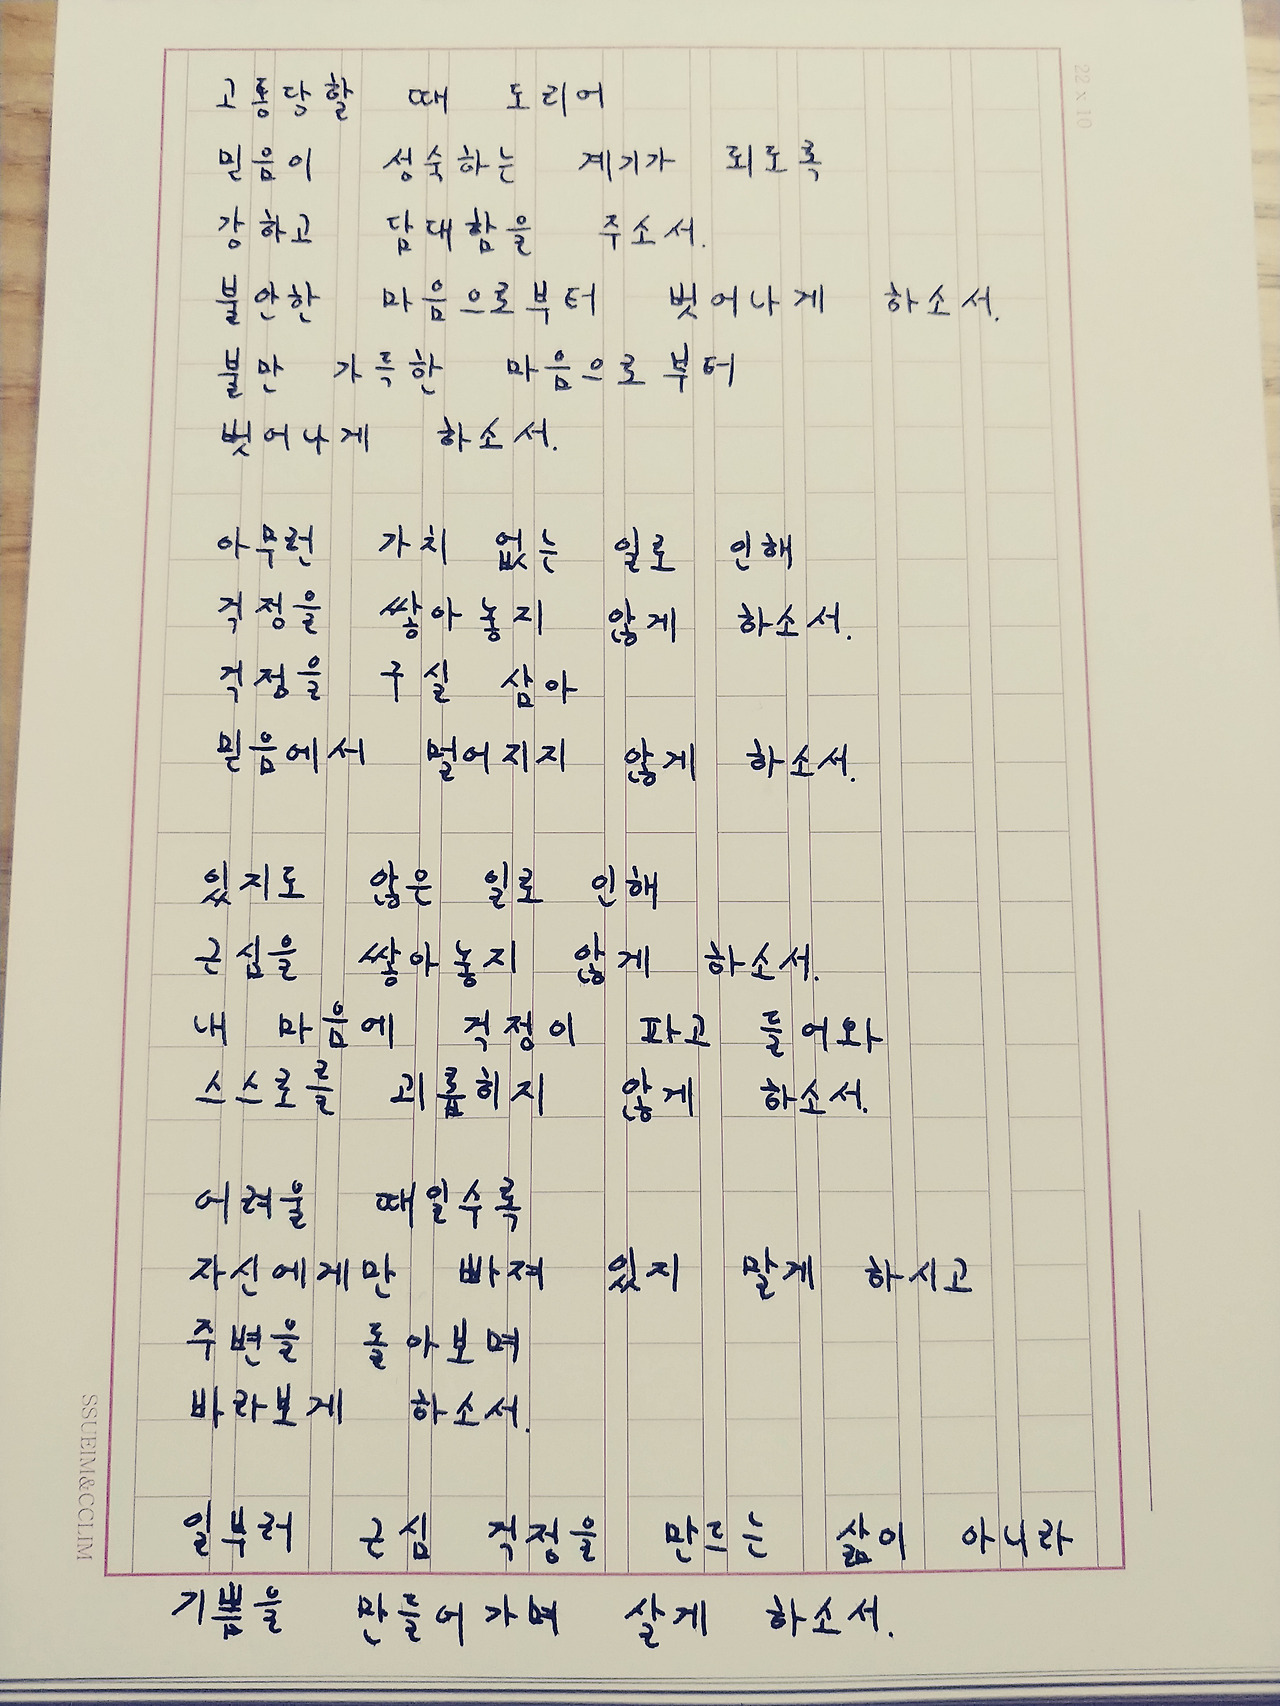 고통당할 때 도리어
믿음이 성숙하는 계기가 되도록
강하고 담대함을 주소서.
불안한 마음으로부터 벗어나게 하소서.
불만 가득한 마음으로부터
벗어나게 하소서.
아무런 가치 없는 일로 인해
걱정을 쌓아놓지 않게 하소서.
걱정을 구실 삼아
믿음에서 멀어지지 않게 하소서.
있지도 않은 일로 인해
근심을 쌓아놓지 않게 하소서.
내 마음에 걱정이 파고 들어와
스스로를 괴롭히지 않게 하소서.
어려울 때일수록
자신에게만 빠져 있지 말게 하시고
주변을 돌아보며
바라보게 하소서.
일부러 근심 걱정을 만드는 삶이 아니라
기쁨을 만들어가며 살게 하소서.
22 x 10
SSUEIM&CCLIM